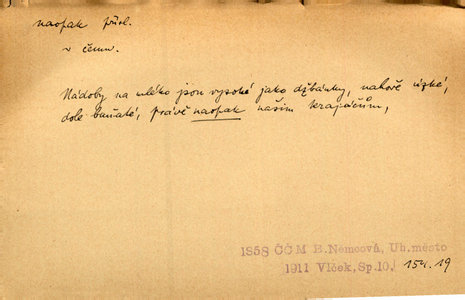 naopak přísl.
v čem.
Nádoby na mléko jsou vysoké jako džbánky, nahoře úzké,
dole baňaté, právě naopak našim krajáčům,
1858 ČČM B.Němcová, Uh.město
1911 Vlček,Sp.10, 154.19